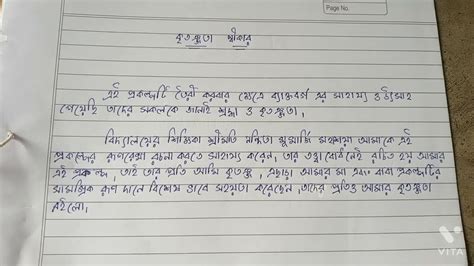 Page No.
কৃতজ্ঞতা স্বীকার
এই প্রকল্পটি তৈরী করবার ক্ষেত্রে এর সাহায্য ও উৎসাহ
পেয়েছি তাদের সকলকে জানাই শ্রদ্ধা ও কৃতজ্ঞতা।
বিদ্যালয়ের শিক্ষিকা শ্রীমতি মুখার্জি মহাশয়া আমাকে এই
প্রকল্পের রূপরেখা রচনা করতে সাহায্য করেন। তার রচিত হয় আমার
এই প্রকল্প, তাই তার প্রতি আমি কৃতজ্ঞ, এছাড়া আমার মা এবং বাবা প্রকল্পটির
সামগ্রিক রূপ দানে বিশেষ ভাবে সহায়তা করেছেন, তাদের প্রতিও আমার কৃতজ্ঞতা
রইলো।
VITA